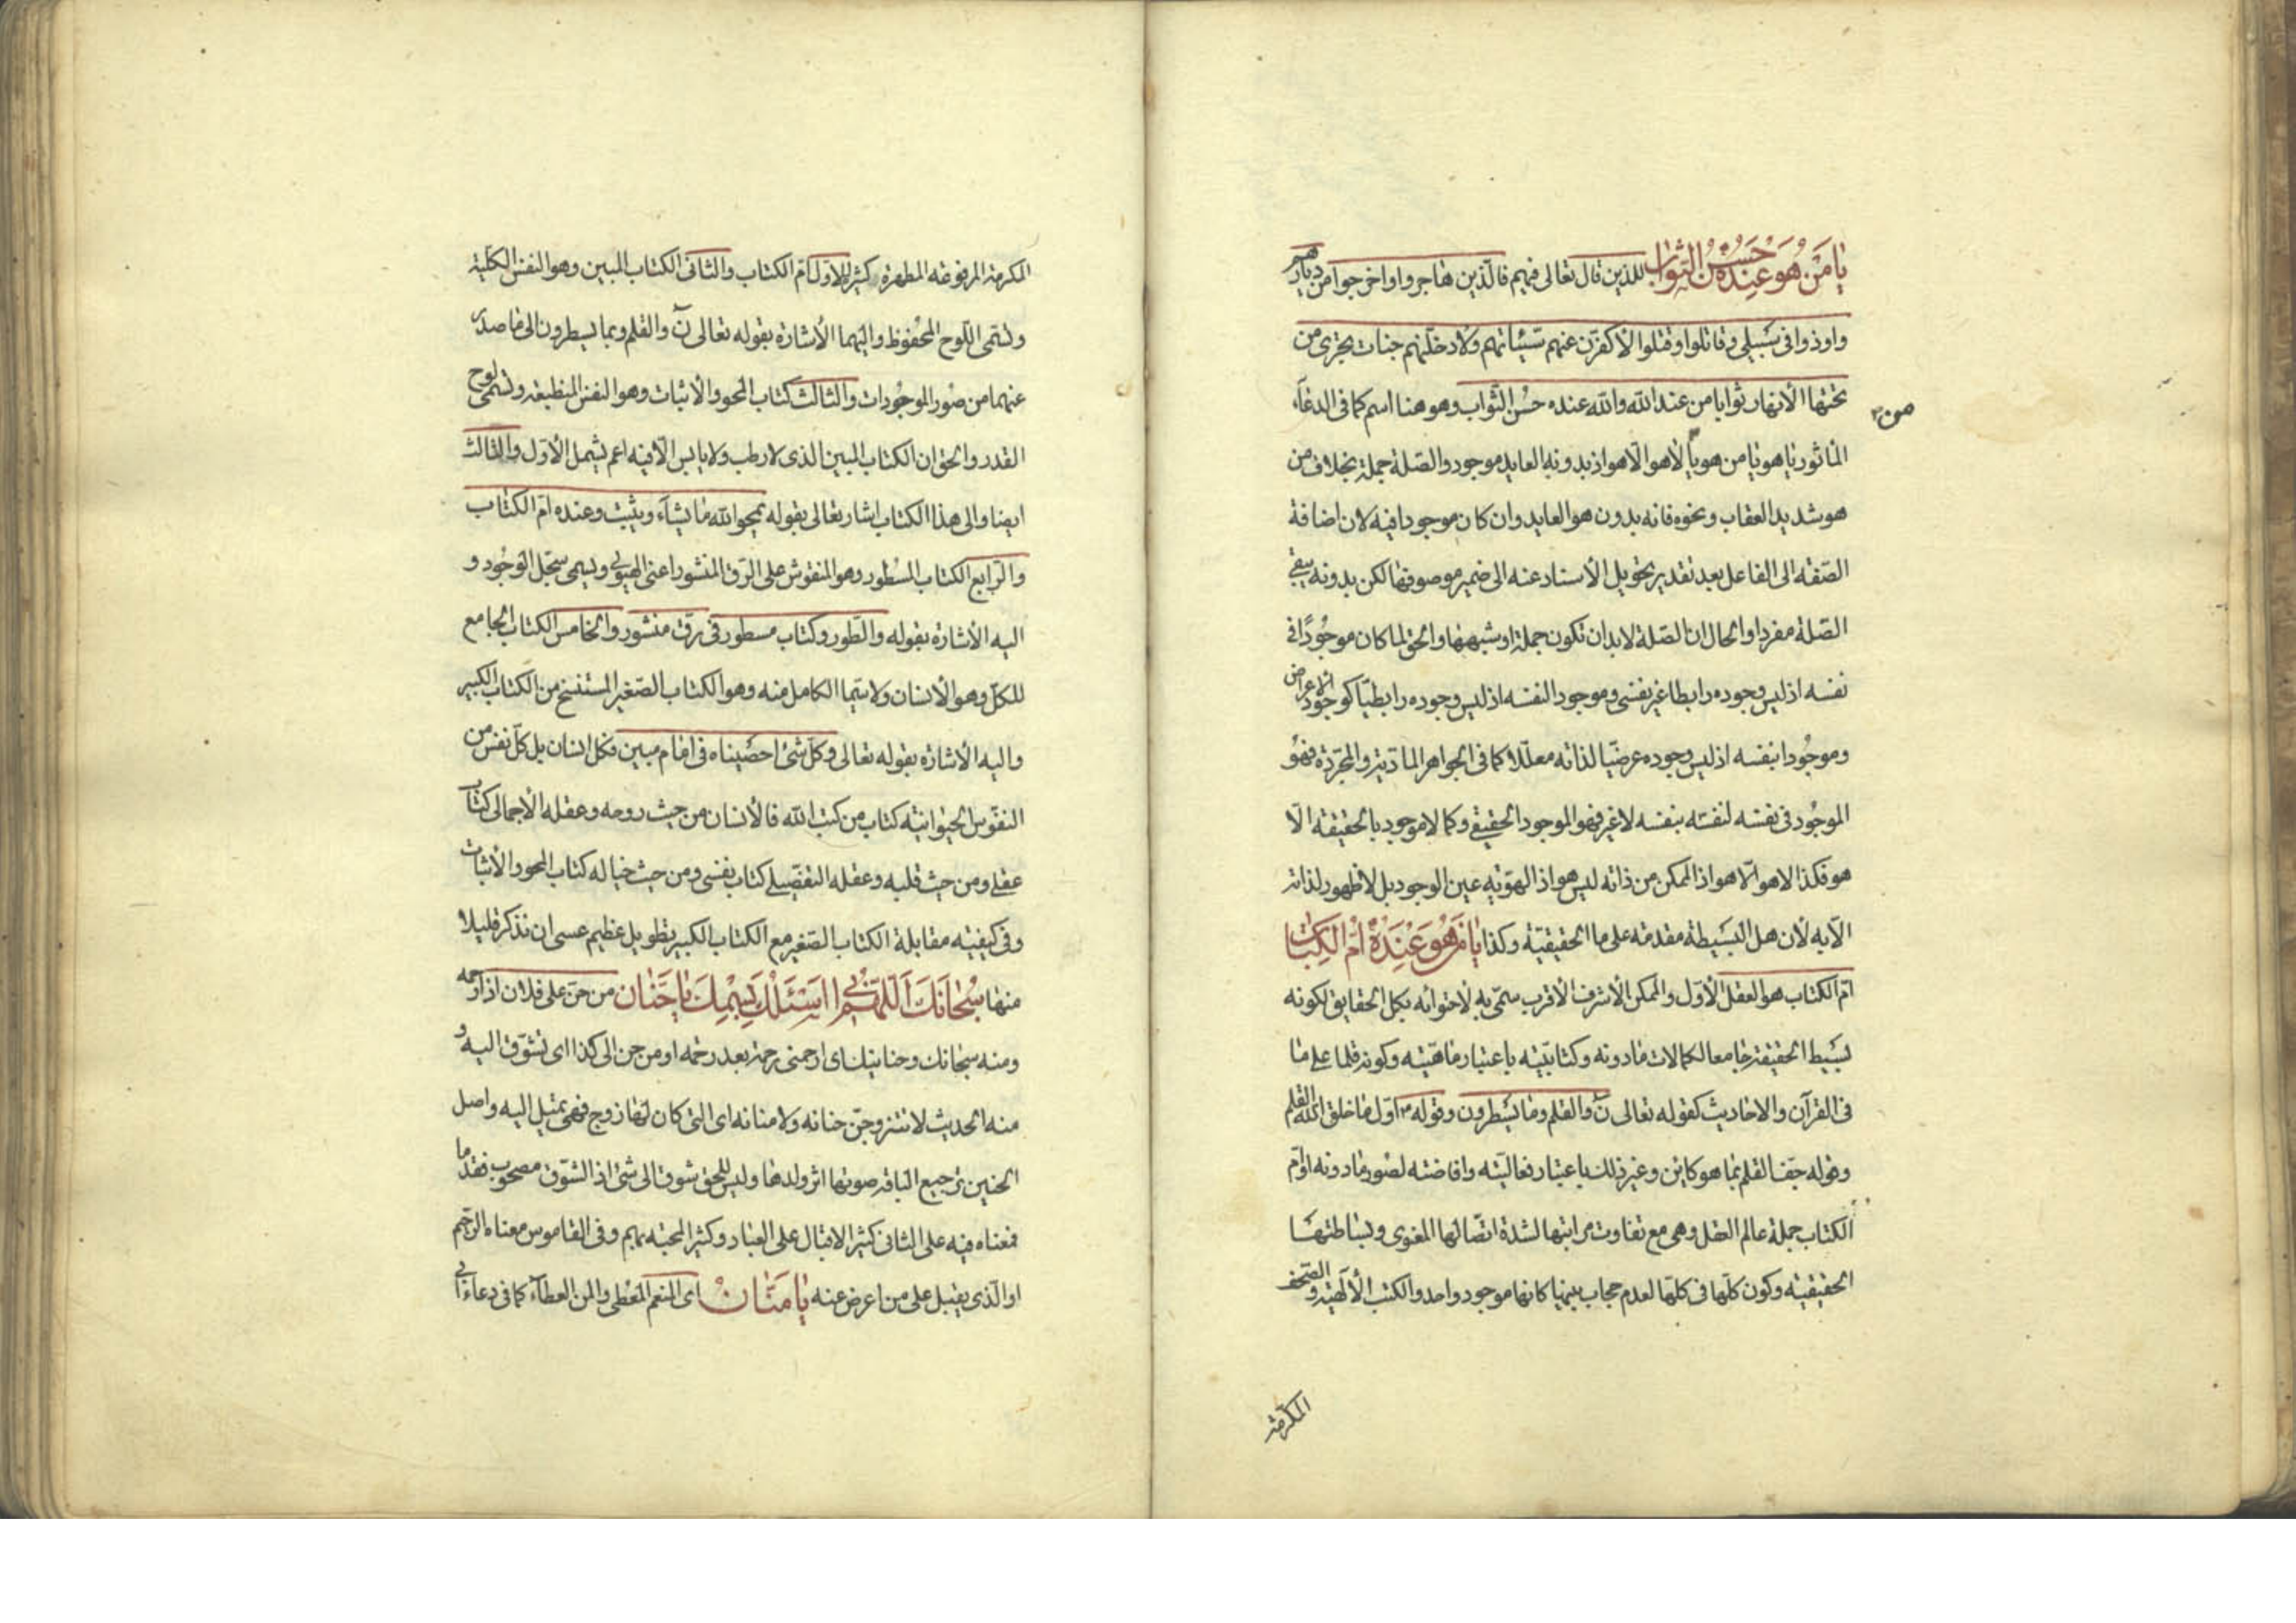 يا من هو عنده حسن الثواب للذين قال تعالى فيهم فالذين هاجروا واخرجوا من ديارهم
واوذوا فى سبيلى وقاتلوا وقتلوا لأكفرن عنهم سيئاتهم ولادخلنهم جنات تجرى من
تحتها الأنهار ثوابا من عند الله والله عنده حسن الثواب وهو هنا اسم كما فى الدعاء
المأثور يا هو يا من هو يا لا هو الا هو اذ بدونه العايد موجود والصلة جملة بخلاف من
هو شديد العقاب ونحوه فانه بدون هو العايد وان كان موجودا فيه لان اضافة
الصفة الى الفاعل بعد تقدير تحويل الأسناد عنه الى ضمير موصوفها لكن بدونه يبقى
الصلة مفردا والحال ان الصلة لابد ان تكون جملة او شبهها والحق لما كان موجودا فى
نفسه اذ ليس وجوده رابطا غير نفسى وموجود النفسه اذ ليس وجوده رابطيا كوجود الاعراض
وموجودا بنفسه اذ ليس وجوده عرضيا لذاته معللا كما فى الجواهر المادية والمجردة فهو
الموجود فى نفسه لنفسه بنفسه لا غير فهو الموجود الحقيقى وكما لا موجود بالحقيقة الا
هو فكذا لا هو الا هو اذ الممكن من ذاته ليس هو اذ الهوية عين الوجود بل لا ظهور لذاته
الا به لأن هل البسيطة مقدمة على ما الحقيقية وكذا يا من هو عنده ام الكتاب
ام الكتاب هو العقل الأول والممكن الأشرف الأقرب سمى به لأحتوائه بكل الحقايق لكونه
بسيط الحقيقة جامعا لكمالات مادونه وكتابيته باعتبار ماهيته وكونه قلما على ما
فى القرآن والاحاديث كقوله تعالى ن والقلم وما يسطرون وقوله ص اول ما خلق الله القلم
وقوله جف القلم بما هو كاين وغير ذلك باعتبار فعاليته وافاضته لصور مادونه او ام
الكتاب جملة عالم العقل وهى مع تفاوت مراتبها لشدة اتصالها المعنوى وبساطتها
الحقيقيه وكون كلها فى كلها لعدم حجاب بينها كانها موجود واحد والكتب الألهية والصحف
المكرمة
المكرمة المرفوعه المطهرة كثيرة الاول ام الكتاب والثانى الكتاب المبين وهو النفس الكلية
وتسمى اللوح المحفوظ واليهما الأشارة بقوله تعالى ن والقلم وبما يسطرون الى ما صدر
عنهما من صور الموجودات والثالث كتاب المحو والأثبات وهو النفس المنطبعة وتسمى لوح
القدر والحق ان الكتاب المبين الذى لا رطب ولا يابس الا فيه اعم يشمل الأول والثالث
ايضا والى هذا الكتاب اشار تعالى بقوله يمحو الله ما يشآء ويثبت وعنده ام الكتاب
والرابع الكتاب المسطور وهو المنقوش على الرق المنشور اعنى الهيولى ويسمى سجل الوجود و
اليه الأشارة بقوله والطور وكتاب مسطور فى رق منشور والخامس الكتاب الجامع
للكل وهو الأنسان ولا سيما الكامل منه وهو الكتاب الصغير المستنسخ من الكتاب الكبير
واليه الأشارة بقوله تعالى وكل شئ احصيناه فى امام مبين فكل انسان بل كل نفس من
النفوس الحيوانية كتاب من كتب الله فالأنسان من حيث روحه وعقله الأجمالى كتاب
عقلى ومن حيث قلبه وعقله التفصيلى كتاب نفسى ومن حيث خياله كتاب المحو والأثبات
وفى كيفيته مقابلة الكتاب الصغير مع الكتاب الكبير تطويل عظيم عسى ان نذكر قليلا
منها سبحانك اللهم انى اسئلك بسمك يا حنان من حن على فلان اذا رحمه
ومنه سبحانك وحنانيك اى ارحمنى رحمة بعد رحمة او من حن الى كذا اى تشوق اليه و
منه الحديث لا تتزوجن حنانه ولا منانه اى التى كان لها زوج فهى تميل اليه واصل
الحنين ترجيع الناقه صوتها اثر ولدها وليس للحق شوق الى شئ اذ الشوق مصحوب فقد ما
فمعناه فيه على الثانى كثير الاقبال على العباد وكثير المحبة بهم وفى القاموس معناه الرحيم
او الذى يقبل على من اعرض عنه يا منان اى المنعم المعطى والمن العطآء كما فى دعاء